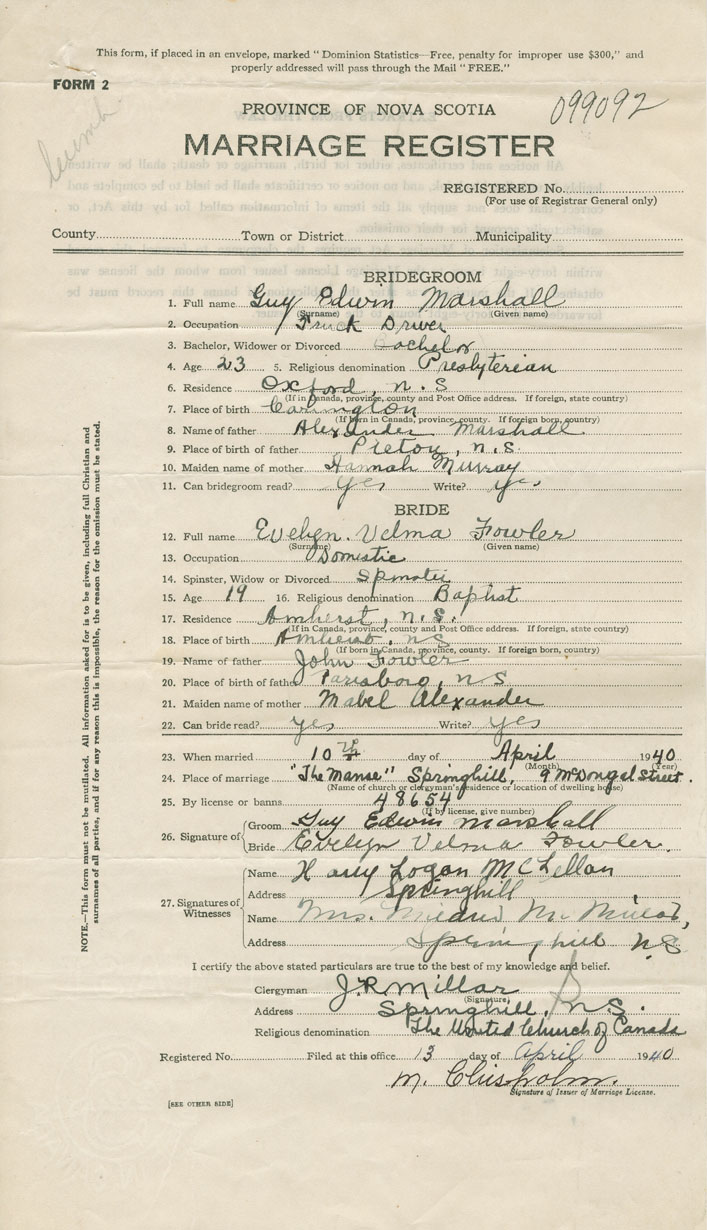 This form, if placed in an envelope, marked "Dominion Statistics—Free, penalty for improper use $300," and
properly addressed will pass through the Mail "FREE."
FORM 2
PROVINCE OF NOVA SCOTIA
099092
MARRIAGE REGISTER
REGISTERED No.
(For use of Registrar General only)
County Town or District Municipality
BRIDEGROOM
1. Full name Guy Edwin Marshall
(Surname) (Given name)
2. Occupation Truck Driver
3. Bachelor, Widower or Divorced Bachelor
4. Age 23 5. Religious denomination Presbyterian
6. Residence Oxford, N.S
(If in Canada, province, county and Post Office address. If foreign, state country)
7. Place of birth
(If born in Canada, province, county. If foreign born, country)
8. Name of father Alexander Marshall
9. Place of birth of father Pictou, n.s.
10. Maiden name of mother Hannah Murray
11. Can bridegroom read? yes Write? yes
BRIDE
12. Full name Evelyn Velma Fowler
(Surname) (Given name)
13. Occupation Domestic
14. Spinster, Widow or Divorced
15. Age 19 16. Religious denomination Baptist
17. Residence Amherst, n.s.
(If in Canada, province, county and Post Office address. If foreign, state country)
18. Place of birth Amherst, ns
(If born in Canada, province, county. If foreign born, country)
19. Name of father John Fowler
20. Place of birth of father Parrsboro, n S
21. Maiden name of mother Mabel Alexander
22. Can bride read? yes Write? yes
23. When married 10th day of April 1940
(Month) (Year)
24. Place of marriage "The Manse" Springhill, 9 McDongal Street.
(Name of church or clergyman's residence or location of dwelling house)
25. By license or banns 48654
(If by license, give number)
26. Signature of
Groom Guy Edwin Marshall
Bride Evelyn Velma Fowler.
27. Signatures of Witnesses
Name Harry Logan McLellan
Address Springhill
Name Mrs.
Address Springhill N.S
I certify the above stated particulars are true to the best of my knowledge and belief.
Clergyman J.R. Millar
(Signature)
Address Springhill, N.S.
Religious denomination The United Church of Canada
Registered No. Filed at this office 13 day of April 1940
M. Chisholm.
Signature of Issuer of Marriage License.
[SEE OTHER SIDE]
NOTE.—This form must not be mutilated. All information asked for is to be given, including full Christian and
surnames of all parties, and if for any reason this is impossible, the reason for the omission must be stated.